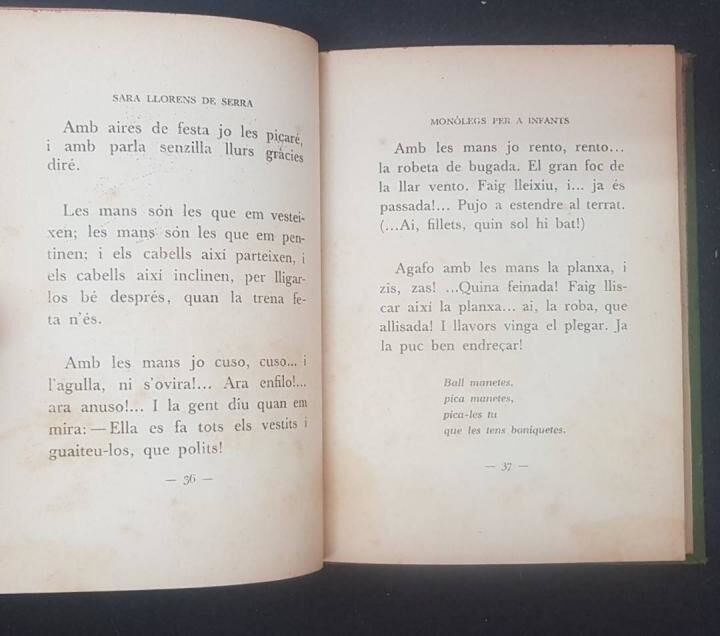 SARA LLORENS DE SERRA
Amb aires de festa jo les picaré,
i amb parla senzilla llurs gràcies
diré.
Les mans són les que em vestei-
xen; les mans són les que em pen-
tinen; i els cabells així parteixen, i
els cabells així inclinen, per lligar-
los bé després, quan la trena fe-
ta n'és.
Amb les mans jo cuso, cuso... i
l'agulla, ni s'ovira!... Ara enfilo!...
ara anuso!... I la gent diu quan em
mira: — Ella es fa tots els vestits i
guaiteu-los, que polits!
— 36 —
MONÒLEGS PER A INFANTS
Amb les mans jo rento, rento...
la robeta de bugada. El gran foc de
la llar vento. Faig lleixiu, i... ja és
passada!... Pujo a estendre al terrat.
(...Ai, fillets, quin sol hi bat!)
Agafo amb les mans la planxa, i
zis, zas! ...Quina feinada! Faig llis-
car així la planxa... ai, la roba, que
allisada! I llavors vinga el plegar. Ja
la puc ben endreçar!
Ball manetes,
pica manetes,
pica-les tu
que les tens boniquetes.
— 37 —